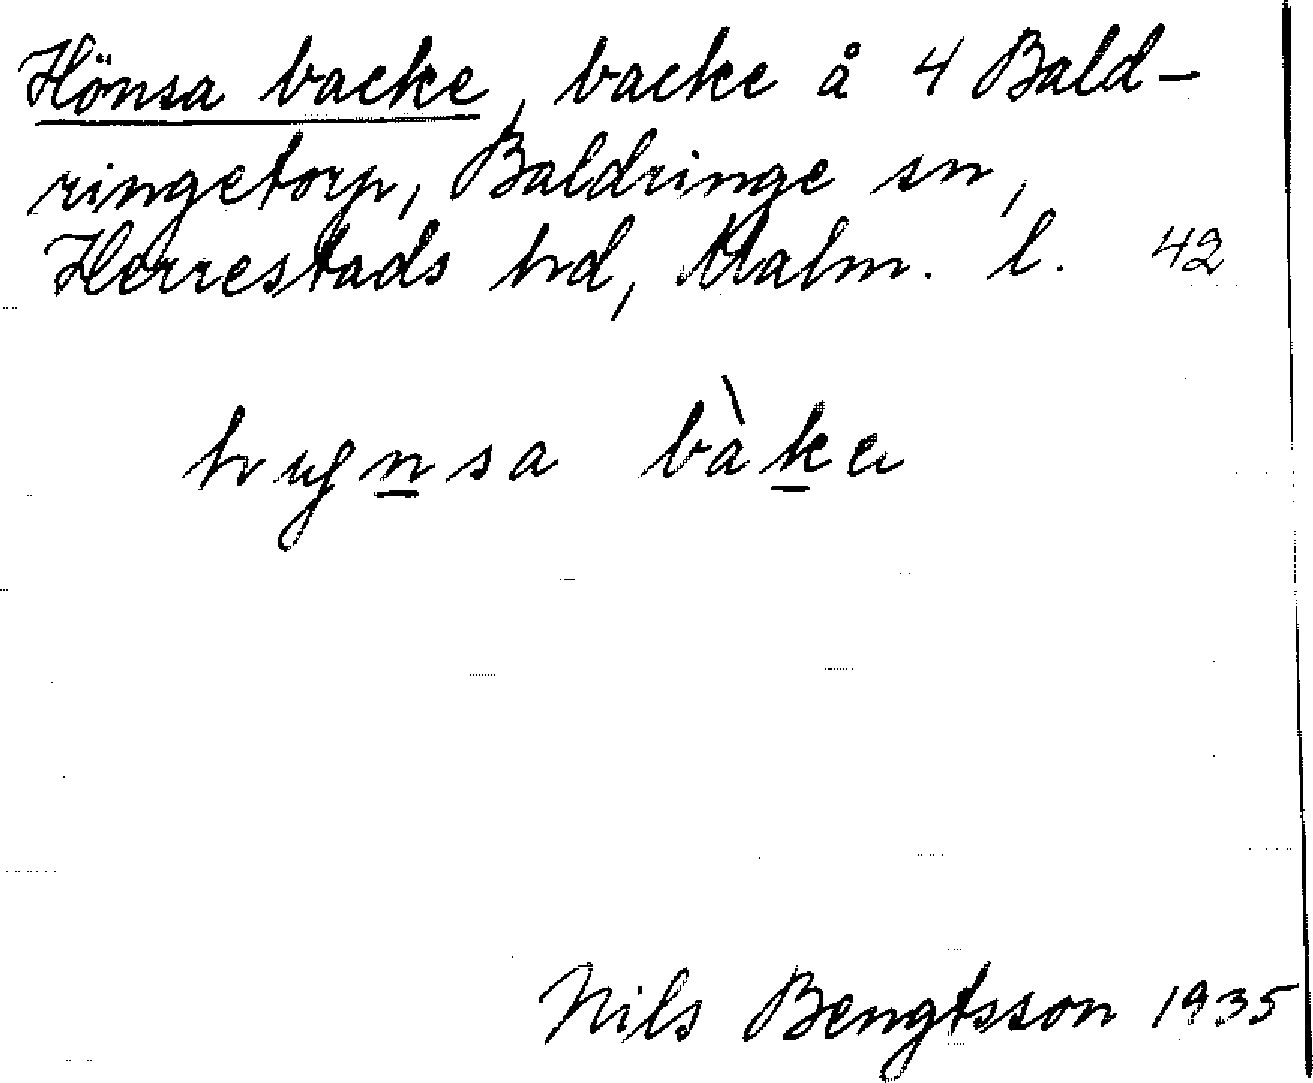 Hönsa backe, backe å 4 Bald-
ringetorp, Baldringe sn,
Herrestads hd, Malm. l. 42
hyn̲sa bàk̲e
Nils Bengtsson 1935